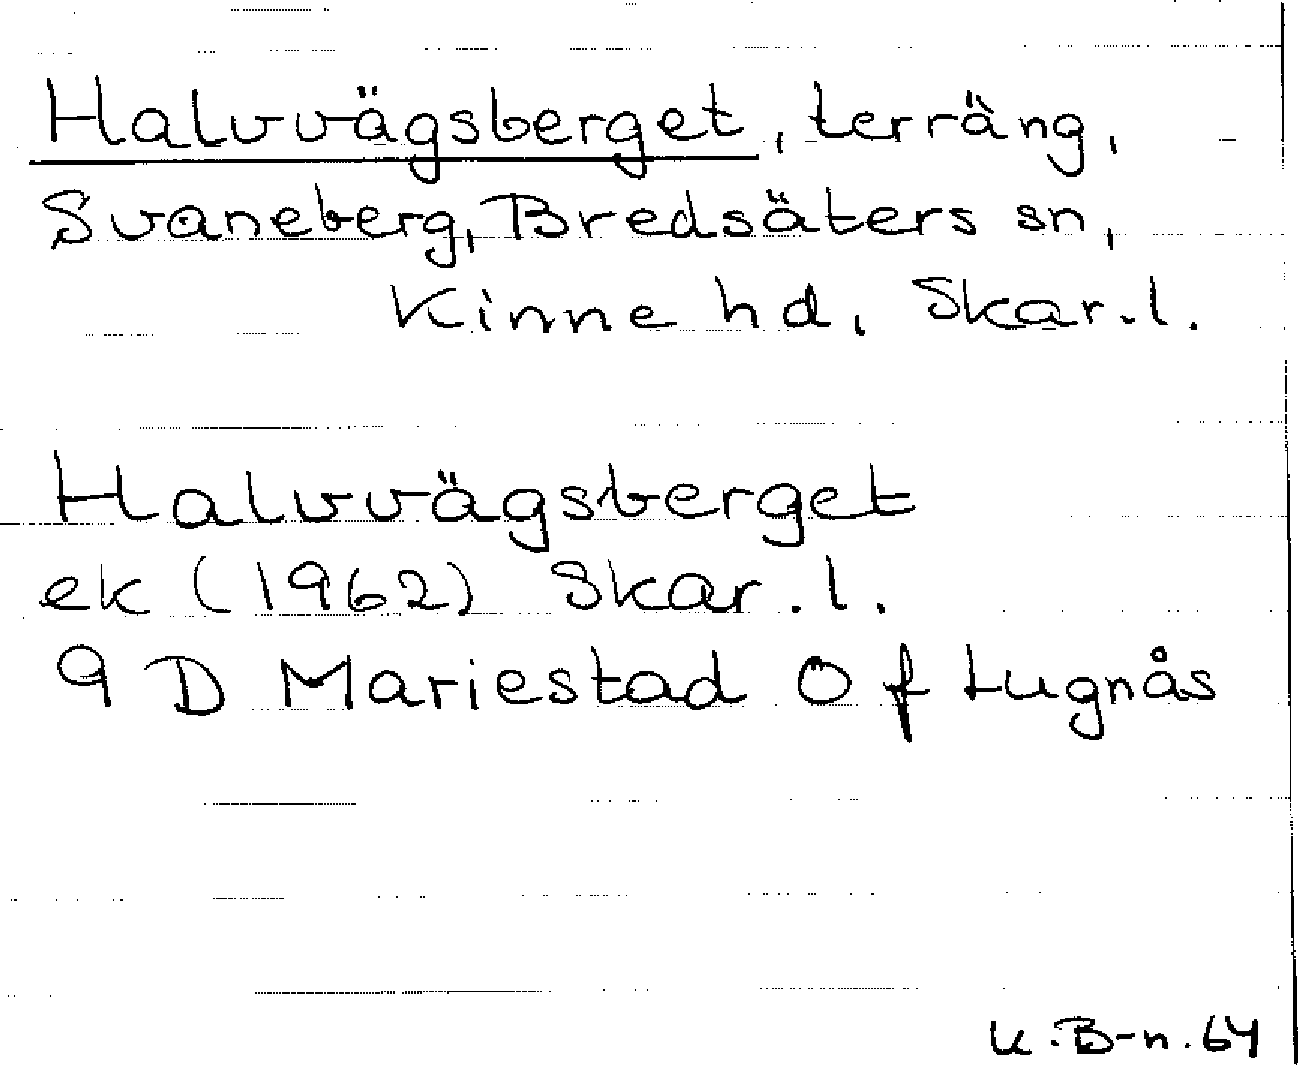 Halvvägsberget, terräng,
Svaneberg, Bredsäters sn,
Kinne hd, Skar.l.
Halvvägsberget
ek (1962) Skar.l.
9 D Mariestad 0 f Lugnås
K.B-n.64